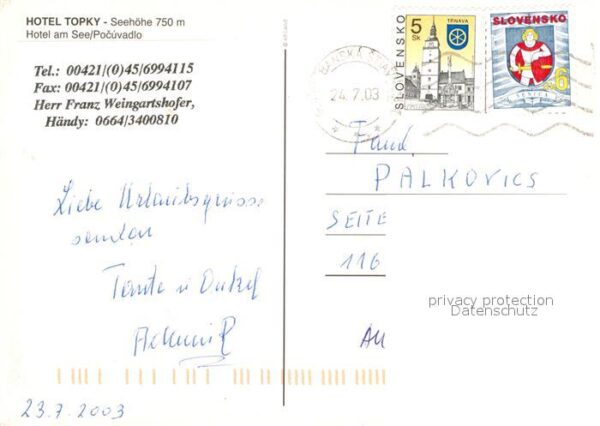 HOTEL TOPKY - Seehöhe 750 m
Hotel am See/Počúvadlo
Tel.: 00421/(0)45/6994115
Fax: 00421/(0)45/6994107
Herr Franz Weingartshofer,
Händy: 0664/3400810
Liebe Urlaubsgrüsse
senden
Tante u Onkel
23.7.2003
SLOVENSKO
5 Sk
TRNAVA
SLOVENSKO
6
BANSKÁ
24.7.03
Fam.
PALKOVICS
SEITE
116
AU
privacy protection
Datenschutz